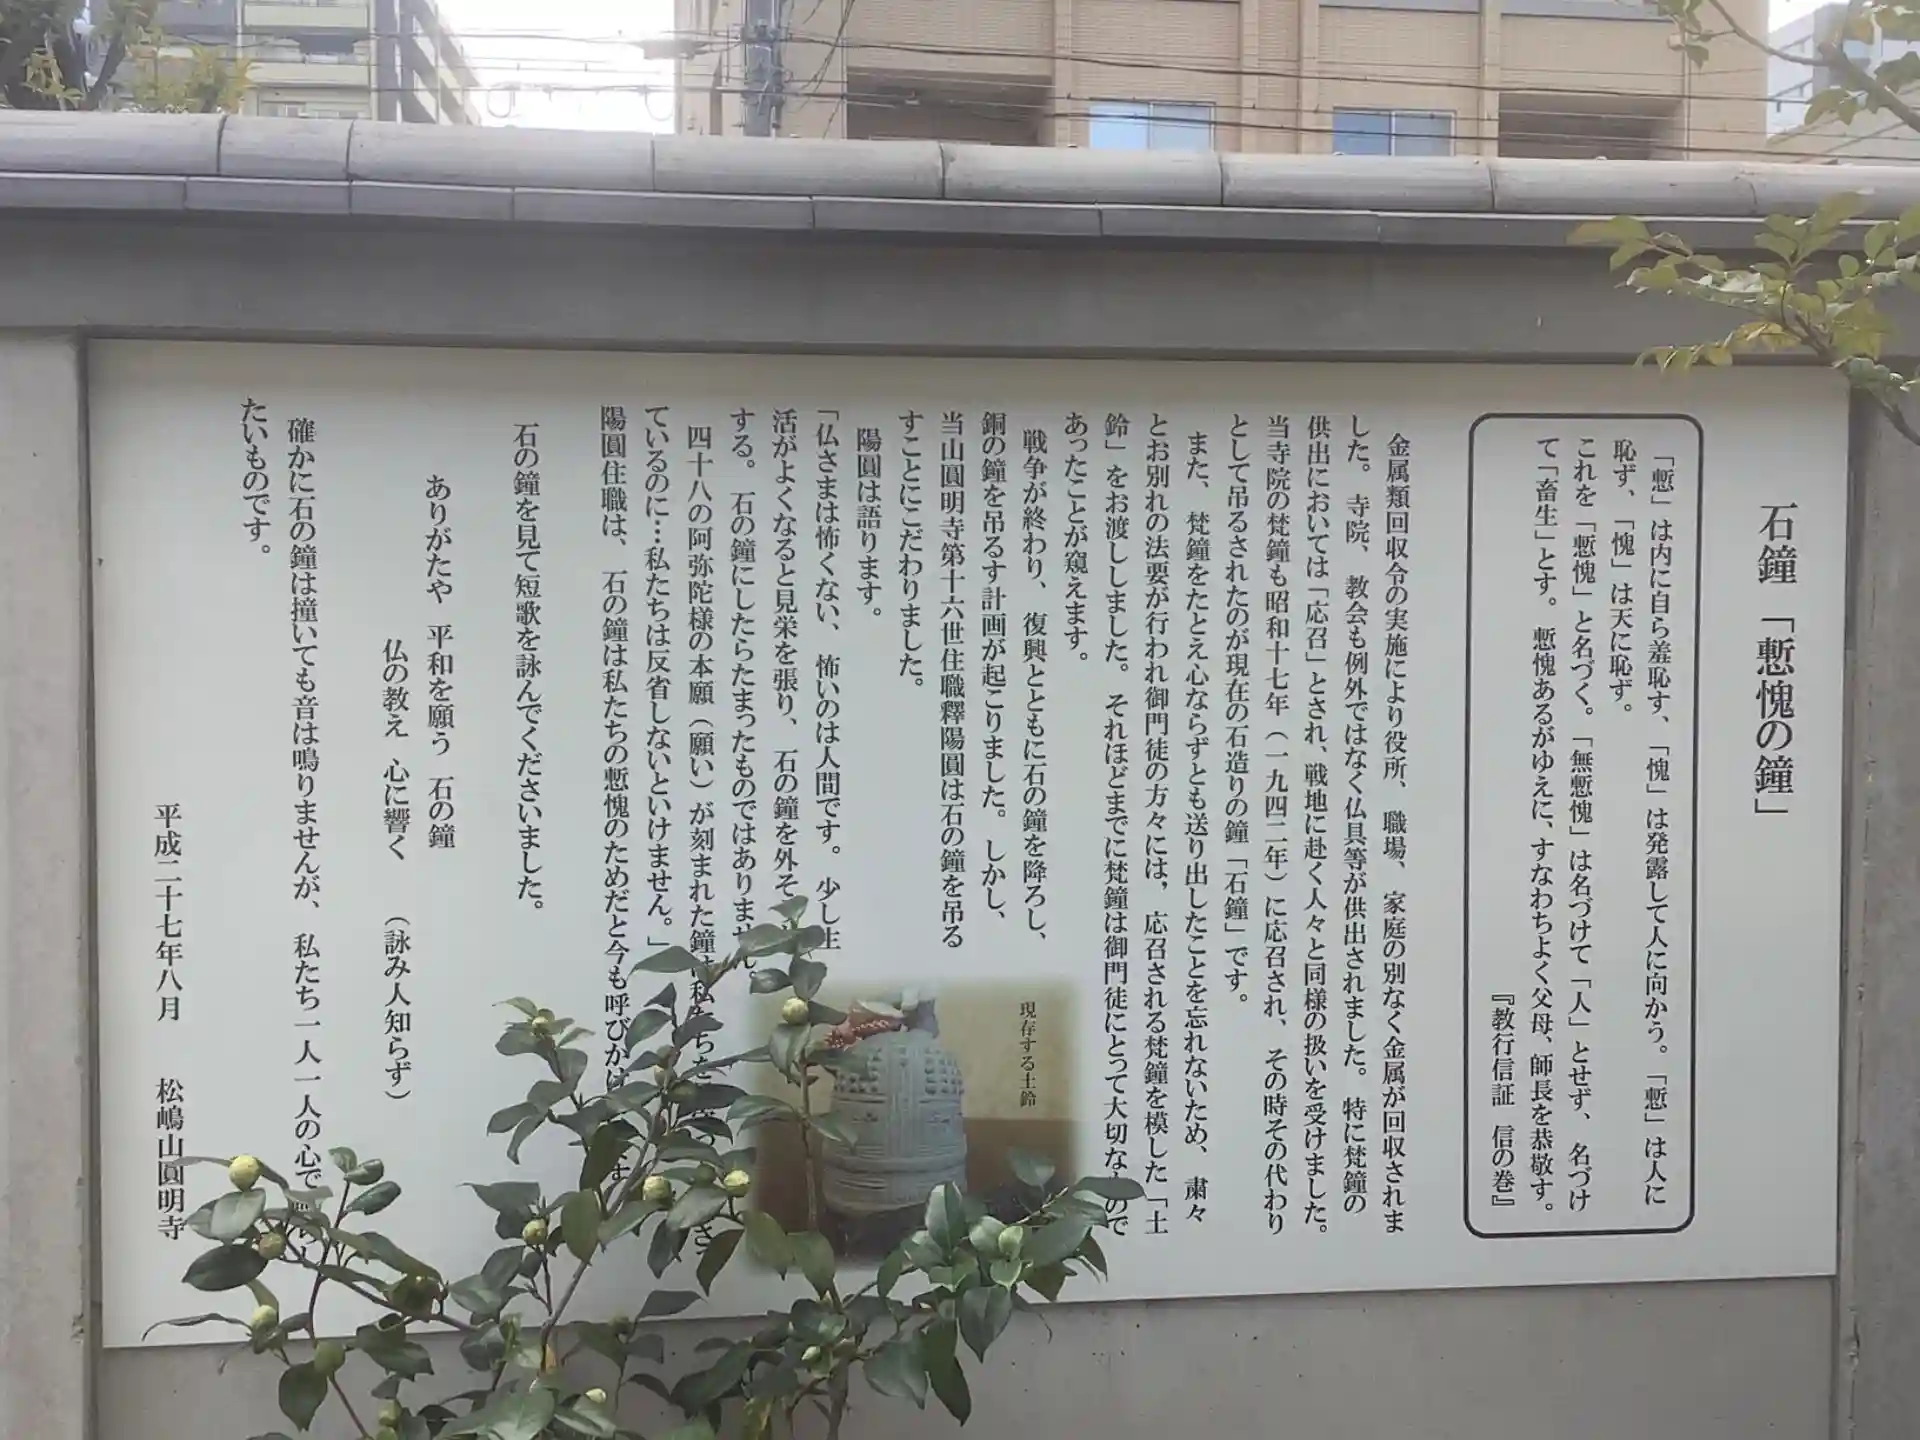 石鐘「慙愧の鐘」
「慙」は内に自ら羞恥す、「愧」は発露して人に向かう。「慙」は人に
恥ず、「愧」は天に恥ず。
これを「慙愧」と名づく。「無慙愧」は名づけて「人」とせず、名づけ
て「畜生」とす。慙愧あるがゆえに、すなわちよく父母、師長を恭敬す。
『教行信証 信の巻』
金属類回収令の実施により役所、職場、家庭の別なく金属が回収されま
した。寺院、教会も例外ではなく仏具等が供出されました。特に梵鐘の
供出においては「応召」とされ、戦地に赴く人々と同様の扱いを受けました。
当寺院の梵鐘も昭和十七年(一九四二年)に応召され、その時その代わり
として吊るされたのが現在の石造りの鐘「石鐘」です。
また、梵鐘をたとえ心ならずとも送り出したことを忘れないため、粛々
とお別れの法要が行われ御門徒の方々には、応召される梵鐘を模した「土
鈴」をお渡ししました。それほどまでに梵鐘は御門徒にとって大切な で
あったことが窺えます。
戦争が終わり、復興とともに石の鐘を降ろし、
銅の鐘を吊るす計画が起こりました。しかし、
当山圓明寺第十六世住職釋陽圓は石の鐘を吊る
すことにこだわりました。
陽圓は語ります。
「仏さまは怖くない、怖いのは人間です。少し生
活がよくなると見栄を張り、石の鐘を外そ
する。石の鐘にしたらたまったものではありません。
四十八の阿弥陀様の本願(願い)が刻まれた鐘は私たちを
ているのに…私たちは反省しないといけません。」
陽圓住職は、石の鐘は私たちの慙愧のためだと今も呼びかけ す
石の鐘を見て短歌を詠んでくださいました。
ありがたや 平和を願う 石の鐘
仏の教え 心に響く (詠み人知らず)
確かに石の鐘は撞いても音は鳴りませんが、私たち一人一人の心で
たいものです。
平成二十七年八月 松嶋山圓明寺
現存する土鈴